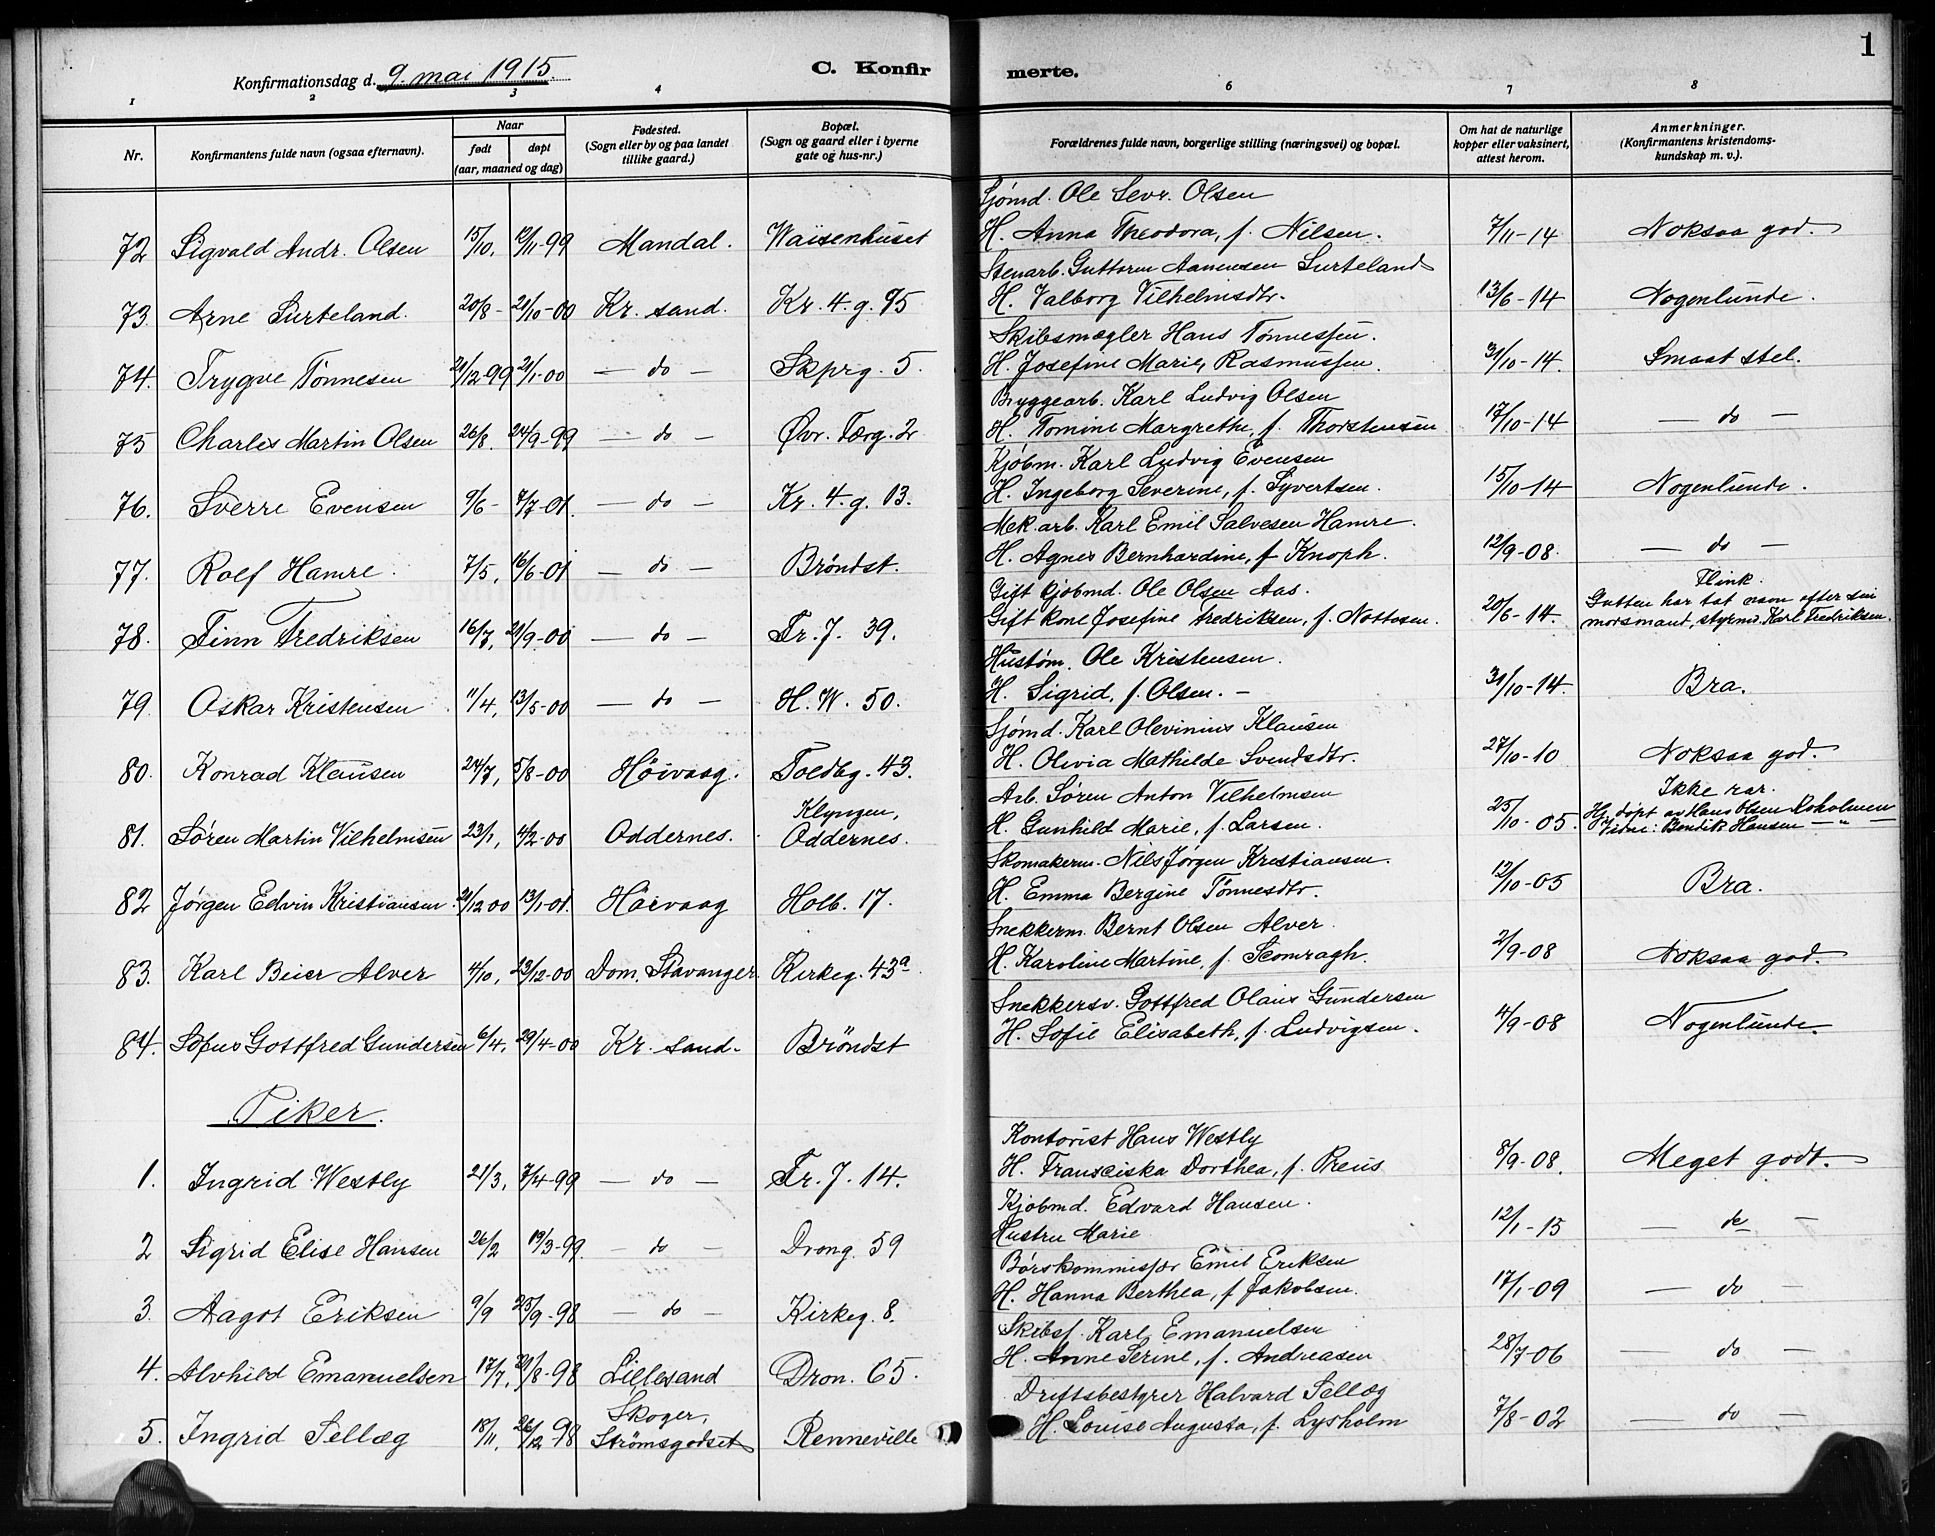 1
Konfirmationsdag d. 9. mai 1915.
C. Konfirmerte.
1 2 3 4 5 6 7 8
Nr. | Konfirmantens fulde navn (ogsaa efternavn). | Naar født døpt (aar, maaned og dag) | Fødested. (Sogn eller by og paa landet tillike gaard.) | Bopæl. (Sogn og gaard eller i byerne gate og hus-nr.) | Forældrenes fulde navn, borgerlige stilling (næringsvei) og bopæl. | Om hat de naturlige kopper eller vaksinert, attest herom. | Anmerkninger. (Konfirmantens kristendoms-kundskap m. v.).
Sjømd. Ole Sevr. Olsen
72 Sigvald Andr. Olsen 15/10, 12/11-99 Mandal. Waisenhuset H. Anna Theodora, f. Nilsen. 7/11-14 Noksaa god.
Stenarb. Guttorm Aanensen Surteland
73. Arne Surteland. 20/8- 21/10-00 Kr. sand. Kr. 4. g. 95 H. Valborg Vilhelmsdtr. 13/6-14 Nogenlunde.
Skibsmægler Hans Tønnessen.
74. Trygve Tønnesen 21/12-99 21/1-00 — do — Skprg. 5. H. Josefine Marie, Rasmussen. 31/10-14. Smaat stel.
Bryggearb. Karl Ludvig Olsen
75 Charles Martin Olsen 26/8. 24/9-99 — do — Øvr. Tærg. 2 H. Tomine Margrethe, f. Thorstensen 17/10-14 — do —
Kjøbm. Karl Ludvig Evensen
76. Sverre Evensen 9/6- 7/7-01. — do — Kr. 4. g. 13. H. Ingeborg Severine, f. Syvertsen. 15/10-14 Nogenlunde.
Mek. arb. Karl Emil Salvesen Hamre.
77. Rolf Hamre. 7/5, 16/6-01 — do — Brøndst. H. Agnes Bernhardine, f Knoph. 12/9-08. — do —
Gift kjøbmd. Ole Olsen Aas. Flink.
78. Finn Fredriksen 16/7, 21/9-00 — do — Fr. J. 39. Gift kone Josefine Fredriksen, f. Nottosen. 20/6-14. Gutten har tat navn efter sin
morsmand, styrmd. Karl Fredriksen.
Hustøm. Ole Kristensen.
79. Oskar Kristensen 11/4, 13/5-00 — do — H. W. 50. H. Sigrid, f. Olsen. — 31/10-14. Bra.
Sjømd. Karl Olevinius Klausen
80. Konrad Klausen 24/7, 5/8-00 Høivaag. Toldbg. 43. H. Olivia Mathilde Svendsdtr. 27/10-10 Noksaa god.
Arb. Søren Anton Vilhelmsen Ikke rar.
81. Søren Martin Vilhelmsen 23/1, 4/2-00 Oddernes. Klyngen, Oddernes. H. Gunhild Marie, f. Larsen. 25/10-05. Hj. døpt av Hans Olsen Roholmen
Vidne: Bendik Hansen — " —
Skomakerm. Nils Jørgen Kristiansen.
82 Jørgen Edvin Kristiansen. 21/12 00 13/1-01. Høivaag Holb. 17. H. Emma Bergine Tønnesdtr. 12/10-05 Bra.
Snekkerm. Bernt Olsen Alver.
83. Karl Beier Alver 4/10, 23/12-00 Dom. Stavanger. Kirkeg. 43a. H. Karoline Martine, f. Scomragh. 2/9-08 Noksaa god.
Snekkersv. Gottfred Olaus Gundersen
84. Sofus Gottfred Gundersen 6/4, 29/4-00 Kr. sand. Brøndst H. Sofie Elisabeth, f. Ludvigsen. 4/9-08 Nogenlunde.
Piker.
Kontorist Hans Westly
1. Ingrid Westly 21/3, 7/4-99 — do — Fr. J. 14. H. Fransciska Dorthea, f. Preus 8/9-08. Meget godt.
Kjøbmd. Edvard Hansen.
2 Sigrid Elise Hansen 26/2 19/3-99. — do — Drong. 59 Hustru Marie 12/1-15 — do —
Børskommissær Emil Eriksen
3. Aagot Eriksen 9/9 25/9-98 — do — Kirkeg. 8. H. Hanna Berthea, f Jakobsen. 17/1-09 — do —
Skibsf. Karl Emanuelsen
4. Alvhild Emanuelsen 17/7, 21/8-98 Lillesand Dron. 65. H. Anne Serine, f. Andreasen 28/7-06 — do —
Driftsbestyrer Halvard Sellæg
5. Ingrid Sellæg 18/11, 26/12-98 Skoger, Strømsgodset Renneville H. Louise Augusta, f. Lysholm 7/8-02 — do —